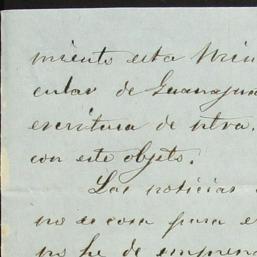 miento esta Min
cular de Guanajua
escritura de ntra.
con este objeto.
Las noticias
no se cosa para e
no he de empren